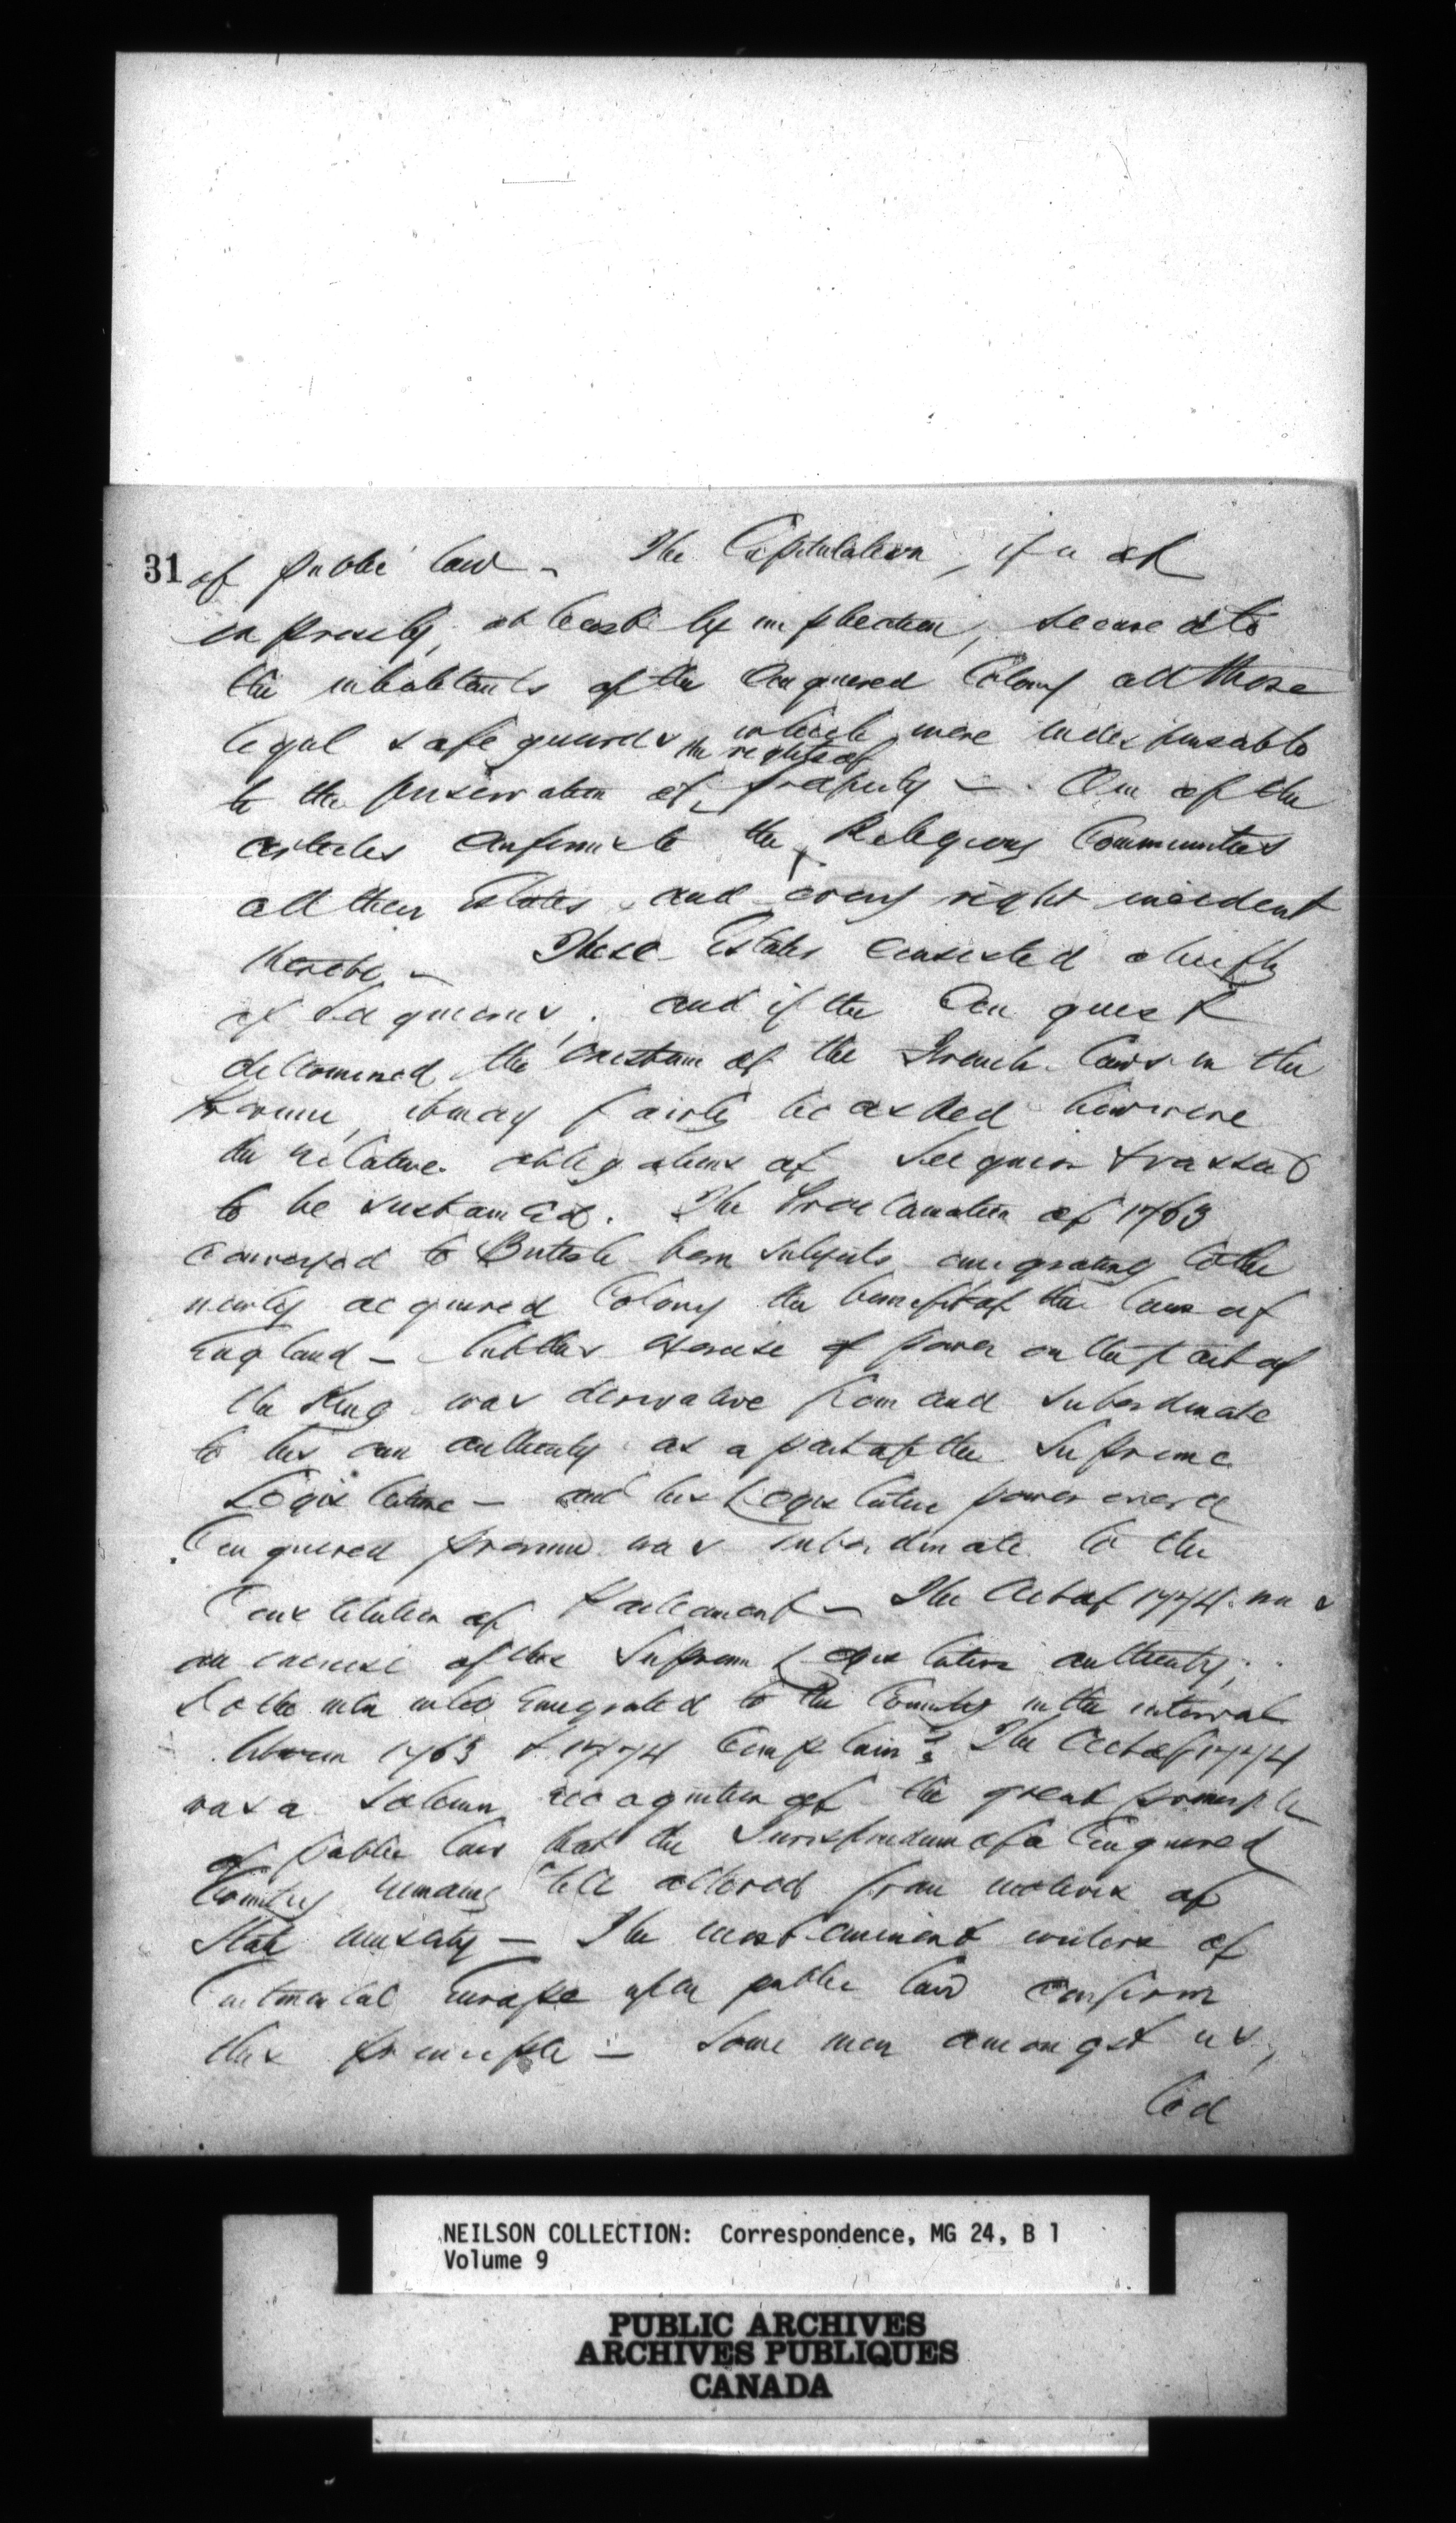 31
of public law - The Capitulation, if not
expressly, at least by implication, secured to
the inhabitants of the Conquered Colony all those
legal safeguards which were indispensable
the rights of
to the preservation of property - One of the
articles confirms to the Religious Communities
all their Estates and every right incident
thereto - These Estates consisted chiefly
of Seigneuries, and if the Conquest
determined the existence of the French laws in the
Province, it may fairly be asked how were
the relative obligations of Seignior & vassal
to be sustained. The Proclamation of 1763
conveyed to British born Subjects emigrating to the
newly acquired Colony the benefit of the laws of
England - but this exercise of power on the part of
the King was derivative from and subordinate
to his own authority as a part of the Supreme
Legislature - and his Legislative power over a
Conquered province was subordinate to the
Constitution of Parliament - The Act of 1774 was
an exercise of the Supreme Legislative authority;
Do the men who Emigrated to the Country in the interval
between 1763 & 1774 complain? The Act of 1774
was a solemn recognition of the great principle
of public law that the Jurisprudence of a Conquered
Country remains till altered from motives of
State necessity - The most eminent writers of
Continental Europe upon public law confirm
this principle - Some men amongst us,
led
NEILSON COLLECTION: Correspondence, MG 24, B 1
Volume 9
PUBLIC ARCHIVES
ARCHIVES PUBLIQUES
CANADA